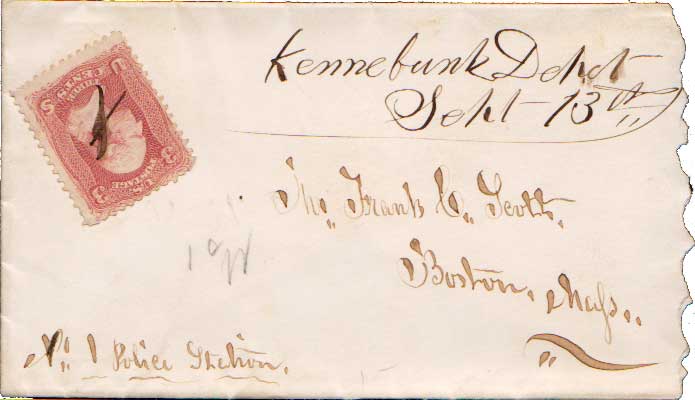 Kennebunk Depot
Sept 13th
U 3 S
THREE CENTS
U.S. POSTAGE
3 3
Mr. Frank C. Scott.
Boston, Mass.
No. 1 Police Station.